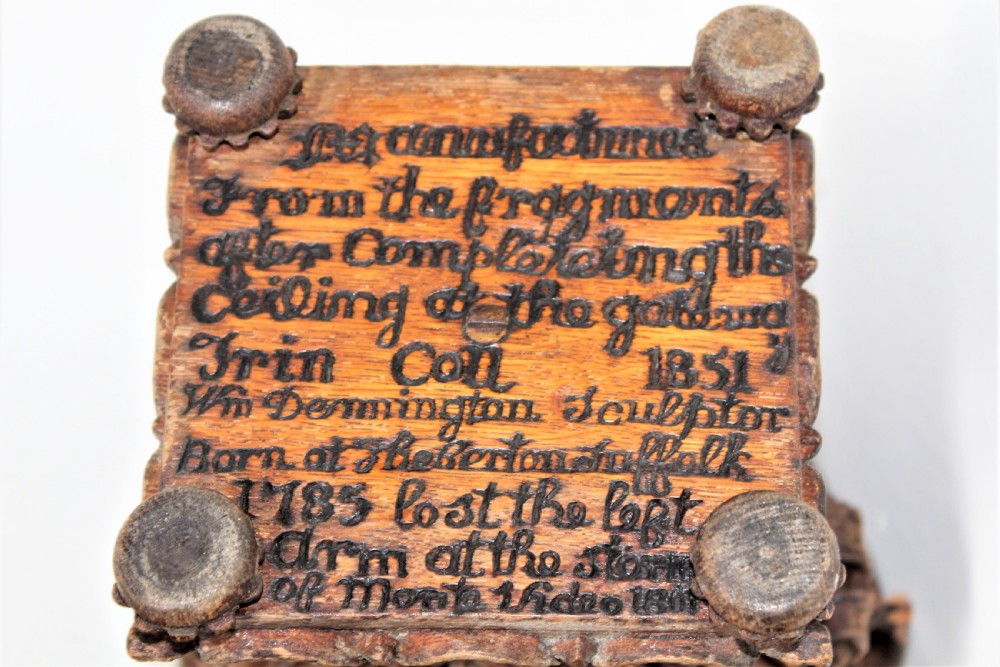 From the fragments
after Completeing the
Ceiling at the gatewa
y
Trin Coll 1851
Wm Dennington Sculptor
Born at Theberton Suffolk
1785 lost the left
Arm at the storm
of Monte Video